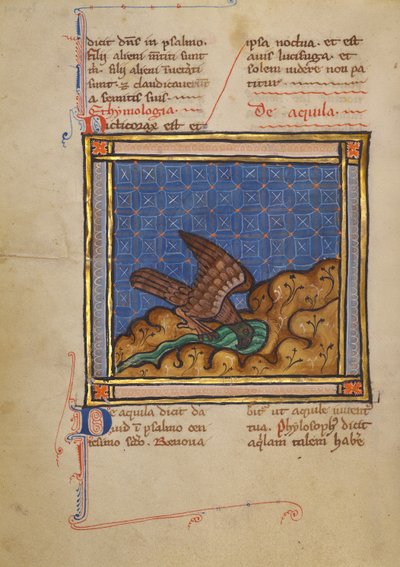 dicit dn̄s in psalmo.
filii alieni m̄titi sunt
m̄. filii alieni īueterati
sunt. ⁊ claudicauerunt
a semitis suis.
Ethymologia
Nicticorax est et
ipsa noctua. et est
auis lucifuga. et
solem uidere non pa
titur.
De aquila.
De aquila dicit da
uid ī psalmo cen
tesimo sc̄do. Renoua
bit͛ ut aquile iuuent
tua. Phylosophꝰ dicit
aq̄lam talem habe